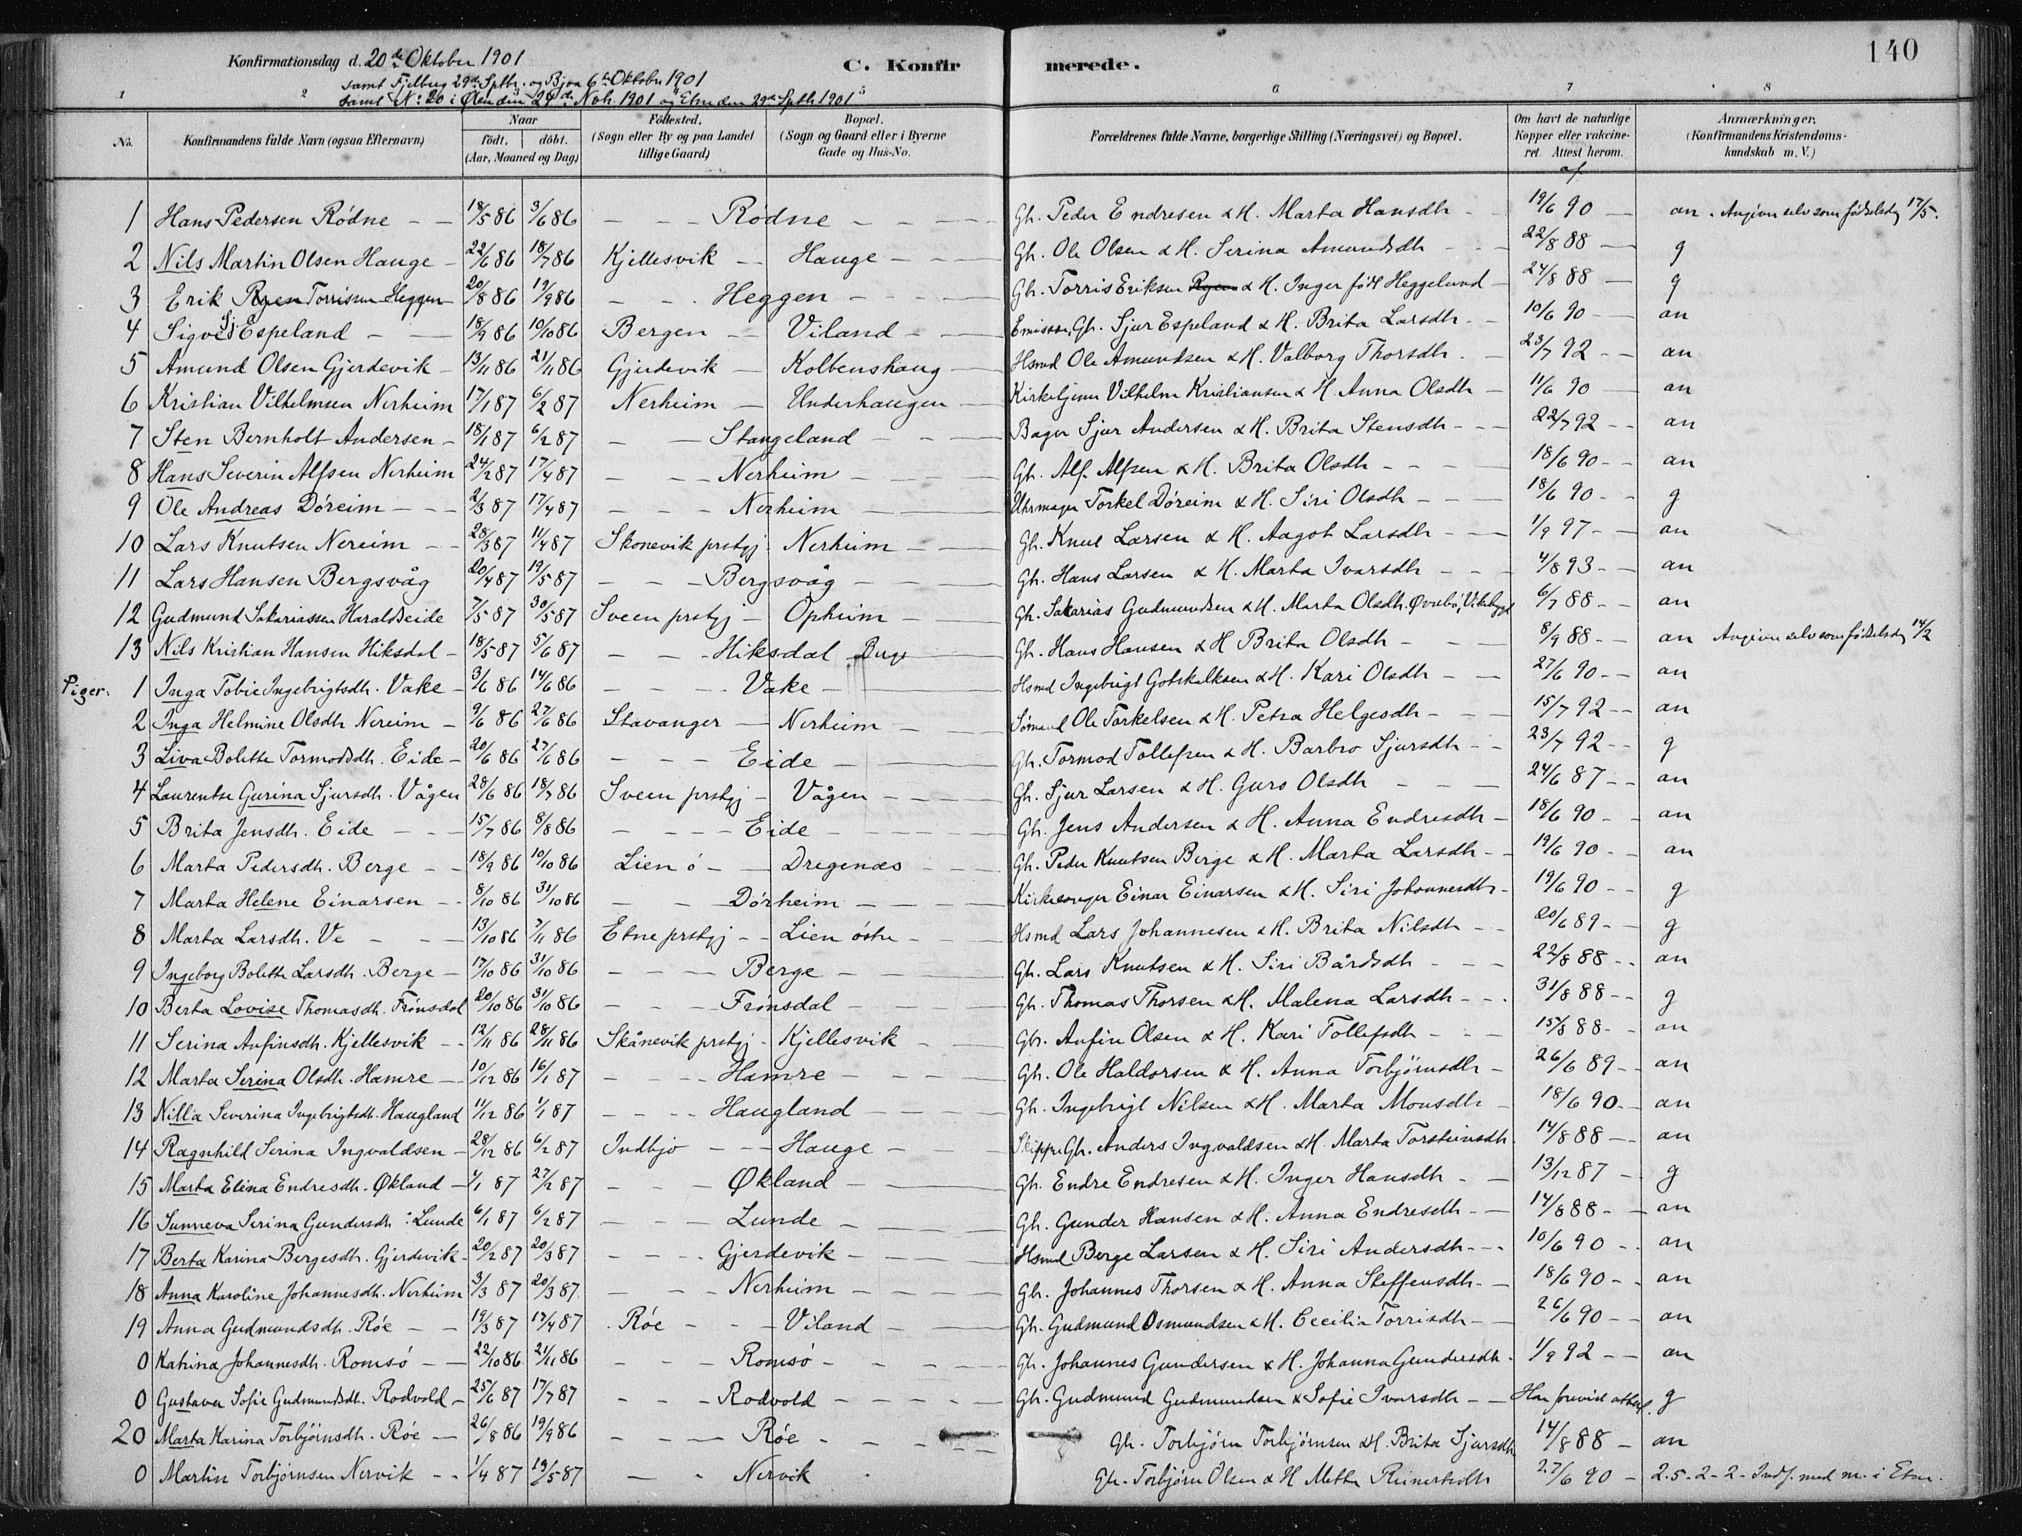 140
Konfirmationsdag d. 20de Oktober 1901 C. Konfirmerede.
samt Fjelberg 29de Septbr. og Bjoa 6te Oktober 1901
samt N: 20 i Ølen den 24de Nov. 1901 og Etne den 29de Septb 1901
1 2 3 5 6 7 8
No. Konfirmandens fulde Navn (ogsaa Efternavn) Naar födt. döbt. (Aar, Maaned og Dag) Födested. (Sogn eller By og paa Landet tillige Gaard) Bopæl. (Sogn og Gaard eller i Byerne Gade og Hus-No. Forældrenes fulde Navne, borgerlige Stilling (Næringsvei) og Bopæl. Om havt de naturlige Kopper eller vakcineret. Attest herom. Anmærkninger. (Konfirmandens Kristendomskundskab m. V.)
1 Hans Pedersen Rødne 18/5 86 3/6 86 Rødne Gb. Peder Endresen & H. Marta Hansdh 19/6 90 an. Angiver selv som fødselsdag 17/5.
2 Nils Martin Olsen Hauge 22/6 86 18/7 86 Kjellesvik Hauge Gb. Ole Olsen & H. Serina Amundsdh 22/8 88 g
3 Erik Ryen Torrisen Heggen 20/8 86 19/9 86 Heggen Gb. Torris Eriksen Ryen & H. Inger født Heggelund 24/8 88 g
4 Sigval Sj. Espeland 18/9 86 10/10 86 Bergen Viland Emissær, Gb. Sjur Espeland & H. Brita Larsdh 10/6 90 an
5 Amund Olsen Gjerdevik 13/11 86 21/11 86 Gjerdevik Kolbenshaug Hsmd Ole Amundsen & H. Valborg Thorsdh 23/7 92 an
6 Kristian Vilhelmsen Nerheim 17/1 87 6/2 87 Nerheim Underhaugen Kirketjener Vilhelm Kristiansen & H. Anna Olsdh 11/6 90 an
7 Sten Bernholt Andersen 18/1 87 6/2 87 Stangeland Bager Sjur Andersen & H. Brita Stensdh 22/7 92 an
8 Hans Severin Alfsen Nerheim 24/2 87 17/4 87 Nerheim Gb. Alf. Alfsen & H. Brita Olsdh 18/6 90 an
9 Ole Andreas Døreim 2/3 87 17/4 87 Nerheim Uhrmager Torkel Døreim & H. Siri Olsdh 18/6 90 g
10 Lars Knutsen Nereim 28/3 87 11/4 87 Skonevik prstgj. Nerheim Gb. Knut Larsen & H. Aagot Larsdh 1/9 97 an
11 Lars Hansen Bergsvåg 20/4 87 19/5 87 Bergsvåg Gb. Hans Larsen & H. Marta Ivarsdh 4/8 93 an
12 Gudmund Sakariassen Haraldseide 7/5 87 30/5 87 Sveen prstgj Opheim Gb. Sakarias Gudmundsen & H. Marta Olsdh. Øvrebø, Vikebygd 6/7 88 an
13 Nils Kristian Hansen Hiksdal 18/5 87 5/6 87 Hiksdal Gb. Hans Hansen & H Brita Olsdh 8/9 88 an Angiver selv som fødselsdag 14/2
Piger. 1 Inga Tobie Ingebrigtsdh. Vake 3/6 86 14/6 86 Vake Hsmd Ingebrigt Gotskalksen & H. Kari Olsdh 27/6 90 an
2 Inga Helmine Olsdh Nereim 9/6 86 27/6 86 Stavanger Nerheim Sømand Ole Torkelsen & H. Petra Helgesdh 15/7 92 an
3 Liva Bolette Tormodsdh. Eide 20/6 86 27/6 86 Eide Gb. Tormod Tollefsen & H. Barbro Sjursdh 23/7 92 g
4 Laurentse Gurina Sjursdh. Vågen 28/6 86 18/7 86 Sveen prstgj Vågen Gb. Sjur Larsen & H. Guro Olsdh 24/6 87 an
5 Brita Jensdh. Eide 15/7 86 8/8 86 Eide Gb. Jens Andersen & H. Anna Endresdh 18/6 90 an
6 Marta Pedersdh. Berge 18/9 86 10/10 86 Lien ö Dregenæs Gb. Peder Knutsen Berge & H. Marta Larsdh 19/6 90 an
7 Marta Helene Einarsen 8/10 86 31/10 86 Dörheim Kirkesanger Einar Einarsen & H. Siri Johannesdh 19/6 90 g
8 Marta Larsdh. Ve 13/10 86 7/11 86 Etne prstgj Lien östre Hsmd Lars Johannesen & H. Brita Nilsdh 20/6 89 g
9 Ingeborg Bolette Larsdh. Berge 17/10 86 31/10 86 Berge Gb. Lars Knutsen & H. Siri Bårdsdh 22/8 88 an
10 Berta Lovise Thomasdh. Frönsdal 20/10 86 31/10 86 Frönsdal Gb. Thomas Thorsen & H. Malena Larsdh 31/8 88 g
11 Serina Anfinsdh. Kjellesvik 12/11 86 28/11 86 Skånevik prstgj. Kjellesvik Gbr. Anfin Olsen & H. Kari Tollefsdh 15/8 88 an
12 Marta Serina Olsdh. Hamre 10/12 86 16/1 87 Hamre Gb. Ole Haldorsen & H. Anna Torbjörnsdh 26/6 89 an
13 Nilla Severina Ingebrigtsdh. Haugland 11/12 86 1/1 87 Haugland Gb. Ingebrigt Nilsen & H. Marta Monsdh 18/6 90 an
14 Ragnhild Serina Ingvaldsen 28/12 86 6/2 87 Indbjo Hauge Skipper Gb. Anders Ingvaldsen & H. Marta Torsteinsdh. 14/8 88 an
15 Marta Elina Endresdh. Økland 4/1 87 27/2 87 Økland Gb. Endre Endresen & H. Inger Hansdh 13/12 87 g
16 Sunneva Serina Gundersdh. Lunde 6/1 87 6/2 87 Lunde Gb. Gunder Hansen & H. Anna Endresdh 14/8 88 an
17 Berta Karina Bergesdh. Gjerdevik 20/2 87 20/3 87 Gjerdevik Hsmd Berge Larsen & H. Siri Andersdh 10/6 90 an
18 Anna Karoline Johannesdh. Nerheim 3/3 87 20/3 87 Nerheim Gb. Johannes Thorsen & H. Anna Steffensdh 18/6 90 an
19 Anna Gudmundsdh. Röe 19/3 87 17/4 87 Röe Viland Gb. Gudmund Osmundsen & H. Cecilia Torrisdh 26/6 90 an
0 Katrina Johannesdh. Romsö 22/10 86 21/11 86 Romsö Gb. Johannes Gundersen & H. Johanna Gundersdh 1/9 92 an
0 Gustava Sofie Gudmundsdh. Rodvold 25/6 87 17/7 87 Rodvold Gb. Gudmund Gudmundsen & Sofie Ivarsdh Har forevist attest. g
20 Marta Karina Torbjörnsdh. Röe 26/8 86 19/9 86 Röe Gb. Torbjörn Torbjörnsen & H. Brita Sjursdh 14/8 88 an
0 Martin Torbjörnsen Nervik 1/4 87 19/5 87 Nervik Gb. Torbjörn Olsen & H Mette Reinertsdh 27/6 90 2.5-2-2- Indf. med n. i Etne.